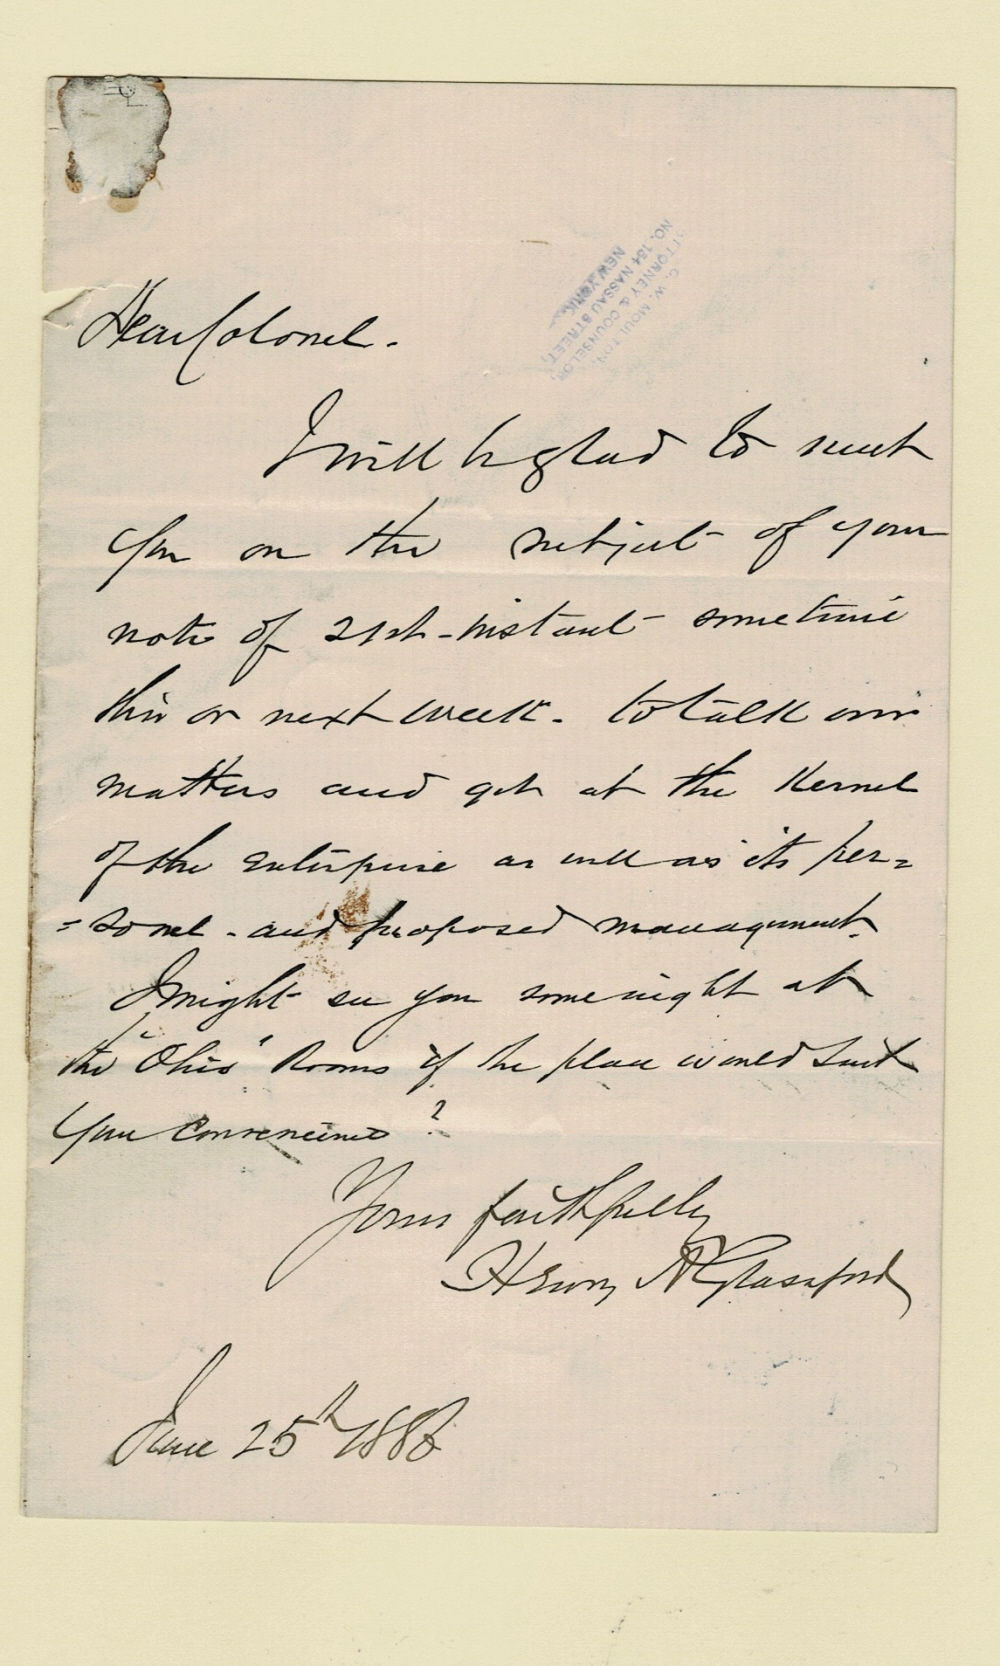 C. W. MOULTON,
ATTORNEY & COUNSELOR,
NO. 184 NASSAU STREET,
NEW YORK.
Dear Colonel.
I will be glad to meet
you on the subject of your
note of 21st instant sometime
this or next week. to talk over
matters and get at the Kernel
of the enterprise as well as its per=
=sonel. and proposed management.
I might see you some night at
the "Ohio" Rooms if the place would suit
your convenience?
Yours faithfully
Henry A Glassford
June 25th 1886